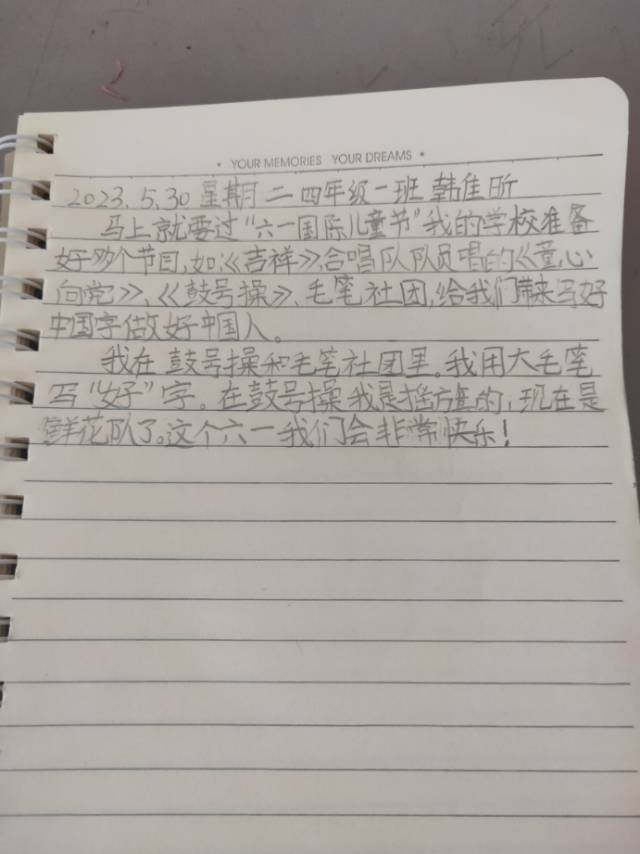 • YOUR MEMORIES YOUR DREAMS •
2023.5.30 星期二 四年级一班 韩佳昕
马上就要过“六一国际儿童节”我的学校准备
好多个节目,如:《吉祥》,合唱队队员唱的《童心
向党》、《鼓号操》、毛笔社团,给我们带来写好
中国字做好中国人。
我在鼓号操和毛笔社团里。我用大毛笔
写“好”字。在鼓号操我是摇方旗的,现在是
鲜花队了。这个六一我们会非常快乐!